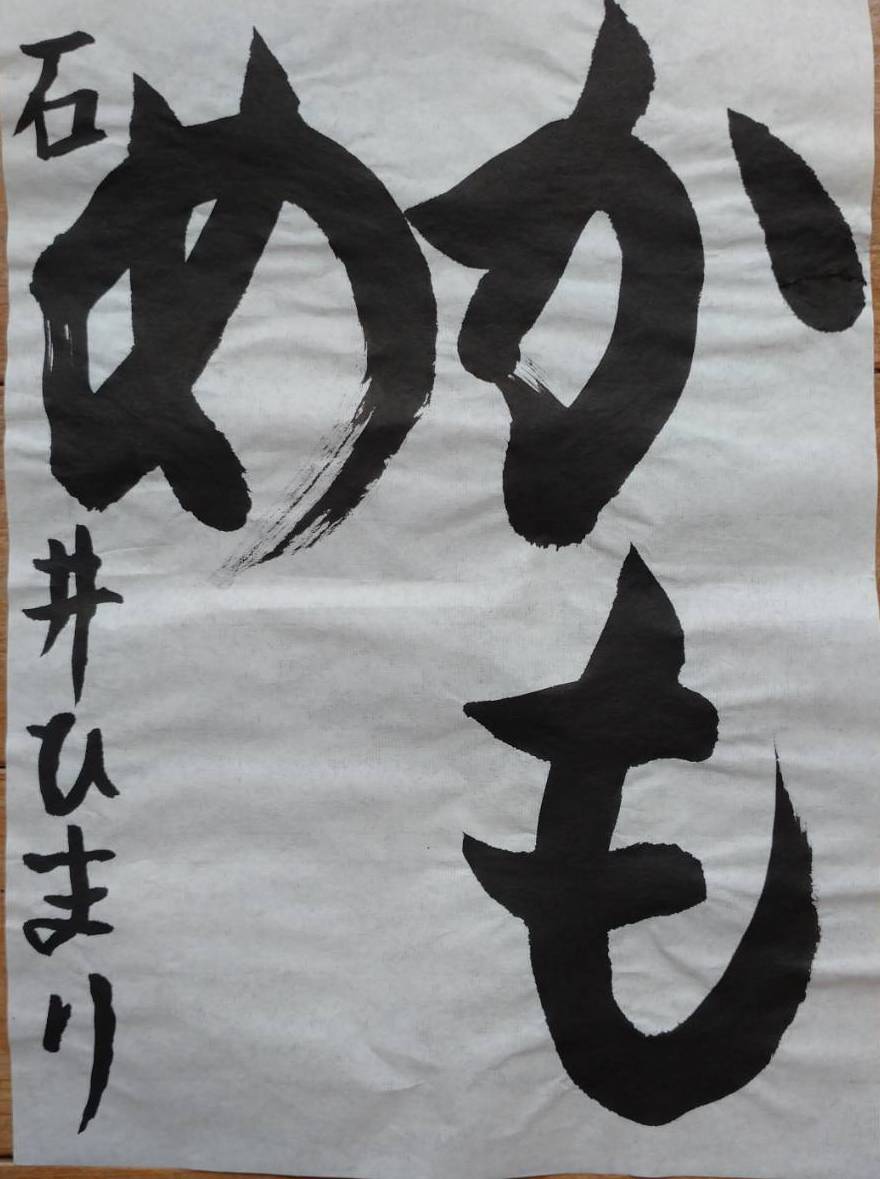 かも
め
石井ひまり